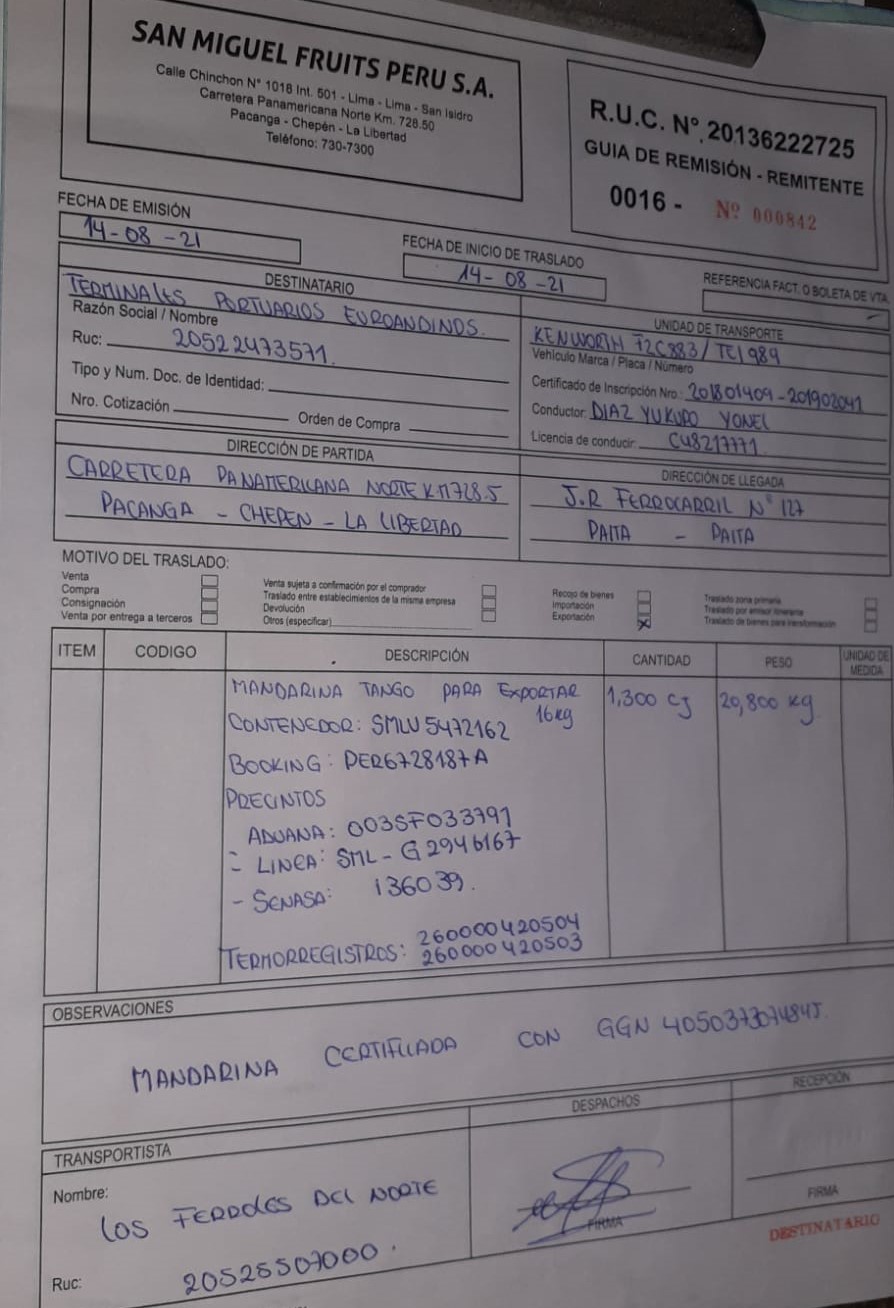 SAN MIGUEL FRUITS PERU S.A.
Calle Chinchon N° 1018 Int. 501 - Lima - Lima - San Isidro
Carretera Panamericana Norte Km. 728.50
Pacanga - Chepén - La Libertad
Teléfono: 730-7300
R.U.C. N°. 20136222725
GUIA DE REMISIÓN - REMITENTE
0016 - Nº 000842
FECHA DE EMISIÓN
14-08-21
FECHA DE INICIO DE TRASLADO
14-08-21
REFERENCIA FACT. O BOLETA DE VTA.
DESTINATARIO
TERMINALES PORTUARIOS EUROANDINOS.
Razón Social / Nombre
Ruc: 20522473571.
Tipo y Num. Doc. de Identidad:
Nro. Cotización Orden de Compra
UNIDAD DE TRANSPORTE
KENWORTH F2C883/TE1989
Vehículo Marca / Placa / Número
Certificado de Inscripción Nro.: 201801409-201902041
Conductor: DIAZ YUKUPO YONEL
Licencia de conducir: C48217771
DIRECCIÓN DE PARTIDA
CARRETERA PANAMERICANA NORTE KM728.5
PACANGA - CHEPEN - LA LIBERTAD
DIRECCIÓN DE LLEGADA
J.R FERROCARRIL N° 127
PAITA - PAITA
MOTIVO DEL TRASLADO:
Venta
Compra
Consignación
Venta por entrega a terceros
Venta sujeta a confirmación por el comprador
Traslado entre establecimientos de la misma empresa
Devolución
Otros (especificar)
Recojo de bienes
Importación
Exportación X
Traslado zona primaria
Traslado por emisor itinerante
Traslado de bienes para transformación
ITEM CODIGO DESCRIPCIÓN CANTIDAD PESO UNIDAD DE MEDIDA
MANDARINA TANGO PARA EXPORTAR 1,300 CJ 20,800 kg.
16kg
CONTENEDOR: SMLU 5472162
BOOKING: PER6728187A
PRECINTOS
ADUANA: 003SF033791
- LINEA: SML - G2946167
- SENASA: 136039.
TERMORREGISTROS: 260000420504
260000420503
OBSERVACIONES
MANDARINA CERTIFICADA CON GGN
TRANSPORTISTA
Nombre:
LOS FERROLES DEL NORTE
Ruc: 20525507000.
DESPACHOS
FIRMA
RECEPCIÓN
FIRMA
DESTINATARIO